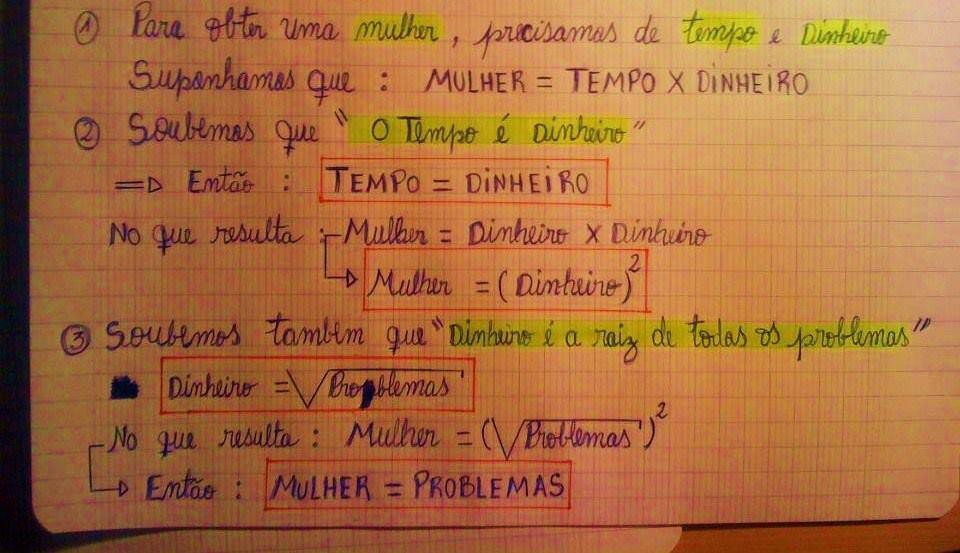 ① Para obter uma mulher, precisamos de tempo e Dinheiro
Suponhamos que : MULHER = TEMPO X DINHEIRO
② Soubemos que "O Tempo é Dinheiro"
⇒ Então : TEMPO = DINHEIRO
No que resulta : Mulher = Dinheiro X Dinheiro
Mulher = (Dinheiro)²
③ Soubemos tambem que "Dinheiro é a raiz de todas os problemas"
Dinheiro = √Problemas
No que resulta : Mulher = (√Problemas)²
Então : MULHER = PROBLEMAS